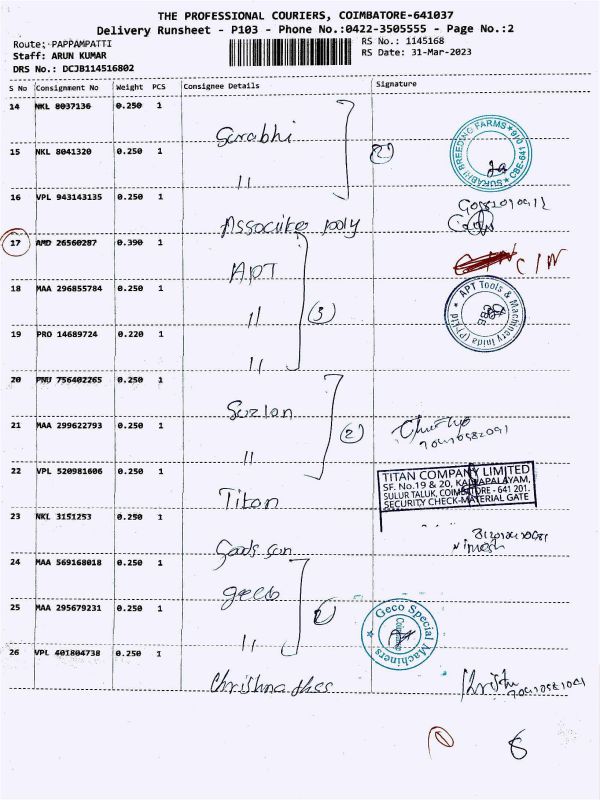 THE PROFESSIONAL COURIERS, COIMBATORE-641037
Delivery Runsheet - P103 - Phone No.:0422-3505555 - Page No.:2
Route: PAPPAMPATTI
RS No.: 1145168
Staff: ARUN KUMAR
RS Date: 31-Mar-2023
DRS No.: DCJB114516802
S No Consignment No Weight PCS Consignee Details Signature
14 NKL 8037136 0.250 1
Surabhi
SURABHI BREEDING FARMS
15 NKL 8041320 0.250 1
(2)
"
16 VPL 943143135 0.250 1
poly
17 AMD 26560287 0.390 1
APT
C/N
18 MAA 296855784 0.250 1
" (3)
APT Tools & Machinery Inida (P) Ltd
CBE
19 PRO 14689724 0.220 1
"
20 PNU 756402265 0.250 1
Suzlon
21 MAA 299622793 0.250 1
(2)
"
22 VPL 520981606 0.250 1
TITAN COMPANY LIMITED
SF. No.19 & 20, KALLAPALAYAM,
SULUR TALUK, COIMBATORE - 641 201.
SECURITY CHECK-MATERIAL GATE
Titan
23 NKL 3151253 0.250 1
24 MAA 569168018 0.250 1
geco
25 MAA 295679231 0.250 1
Geco Special Machiners
Coimbatore
"
26 VPL 401804738 0.250 1
8